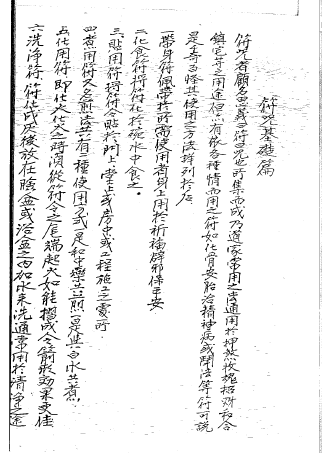 符咒基礎篇
符咒者顧名思義即符與咒所集而成乃道家常用之法通用於押煞收魂招財和合
鎮宅等之用途但亦有依各種情而用之符如化骨安胎治精神病或開法等符可說
是千奇百怪其使用之方法詳列於后
一帶身符佩帶於所需使用者身上用於祈福辟邪保平安
二化食符將符化於碗水中食之。
三貼用符將符令貼於門上.堂上或房中或工程施工之處所
四煮用符又名煎法共有二種使用方式一是和中藥共煎一是些白水共煮.
五化用符即化火化火之時須從符令之尾端起火如能摺成令箭形効果更佳
六洗淨符符化成灰後放在臉盆或浴盆之內加水來洗通常用於清淨之途